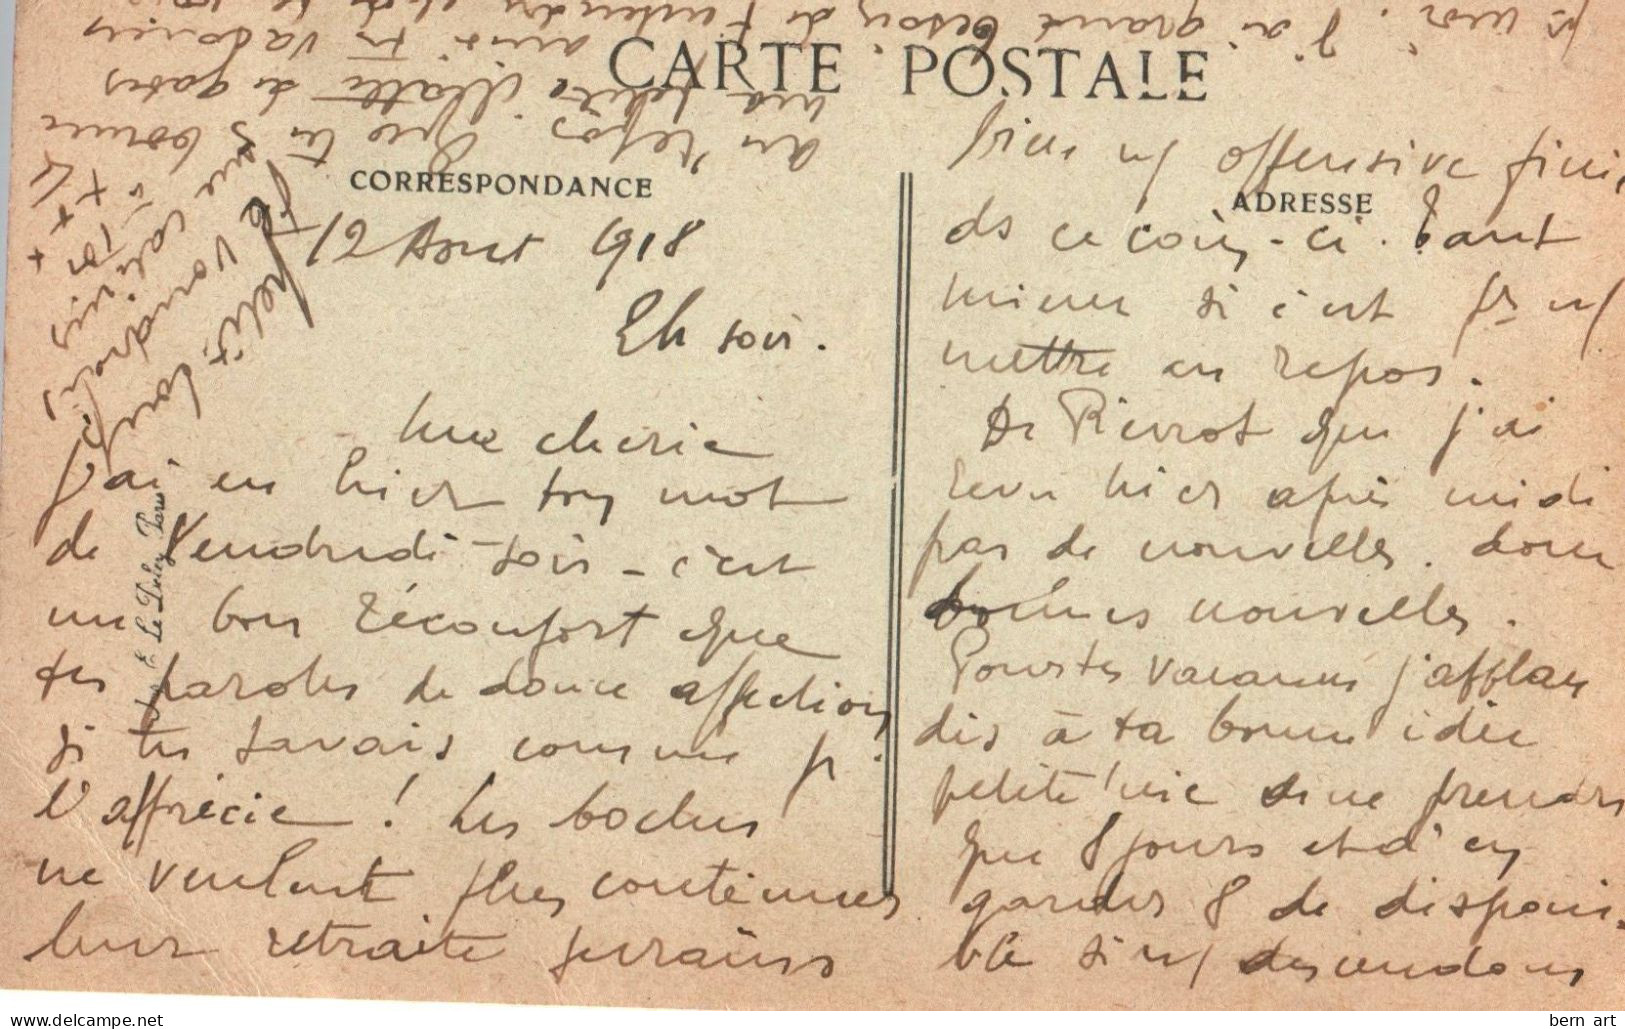 CARTE POSTALE
CORRESPONDANCE
ADRESSE
12 Aout 1918
8h soir.
Mie cherie
j'ai eu hier ton mot
de Vendredi-soir - c'est
un bon réconfort que
tes paroles de douce affection
si tu savais comme je
l'apprécie ! Les boches
ne veulent plus continuer
leur retraite serait-
bien n/ offensive finie
ds ce coin-ci. Tant
mieux si c'est pr n/
mettre en repos.
De Pierrot que j'ai
revu hier après midi
pas de nouvelles. donc
bonnes nouvelles.
Pour tes vacances j'applau
dis à ta bonne idée
petite mie de ne prendre
que 8 jours et d'en
garder 8 de disponi-
ble si n/ descendons
au repos. Que tu es bonne
ma petite
ainsi tu
J'ai grand besoin de t'entendre
Je voudrais
petit
E. Le Deley, Paris
delcampe.net
bern_art